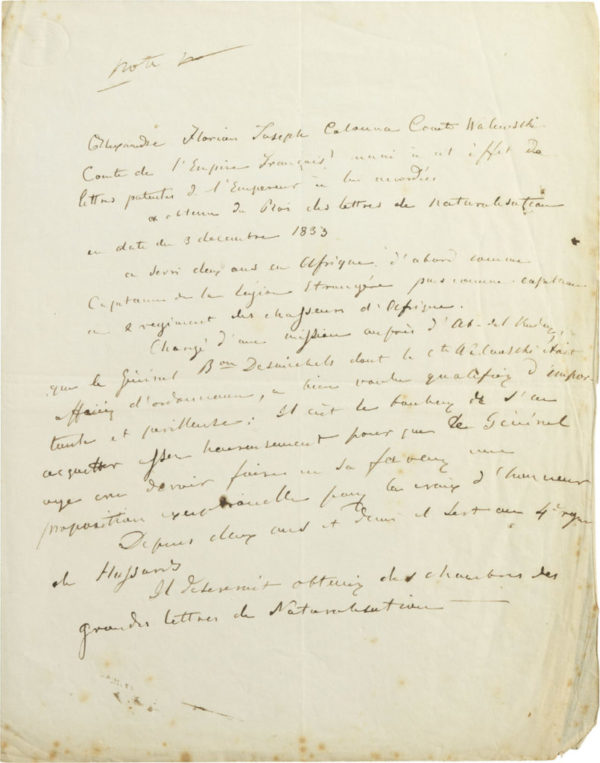 Note
Alexandre Florian Joseph Colonna Comte Walewski
Comte de l'Empire Français muni à cet effet de
lettres patentes de l'Empereur à lui accordées
a obtenu du Roi des lettres de naturalisation
en date du 3 decembre 1833
a servi deux ans en Afrique, d'abord comme
Capitaine de la legion Etrangère puis comme capitaine
au 2 regiment des chasseurs d'Afrique.
Chargé d'une mission auprès d'Ab-del-Kader,
que le Général Bon Desmichels dont le Cte Walewski était
officier d'ordonnance, a bien voulu qualifier d'impor
tante et perilleuse; Il eut le bonheur de s'en
acquitter assez heureusement pour que le Général
aye cru devoir faire en sa faveur une
proposition exceptionnelle pour la croix d'honneur
Depuis deux ans et demi il sert au 4e
de Hussards
Il desirerait obtenir des chambres des
grandes lettres de Naturalisation